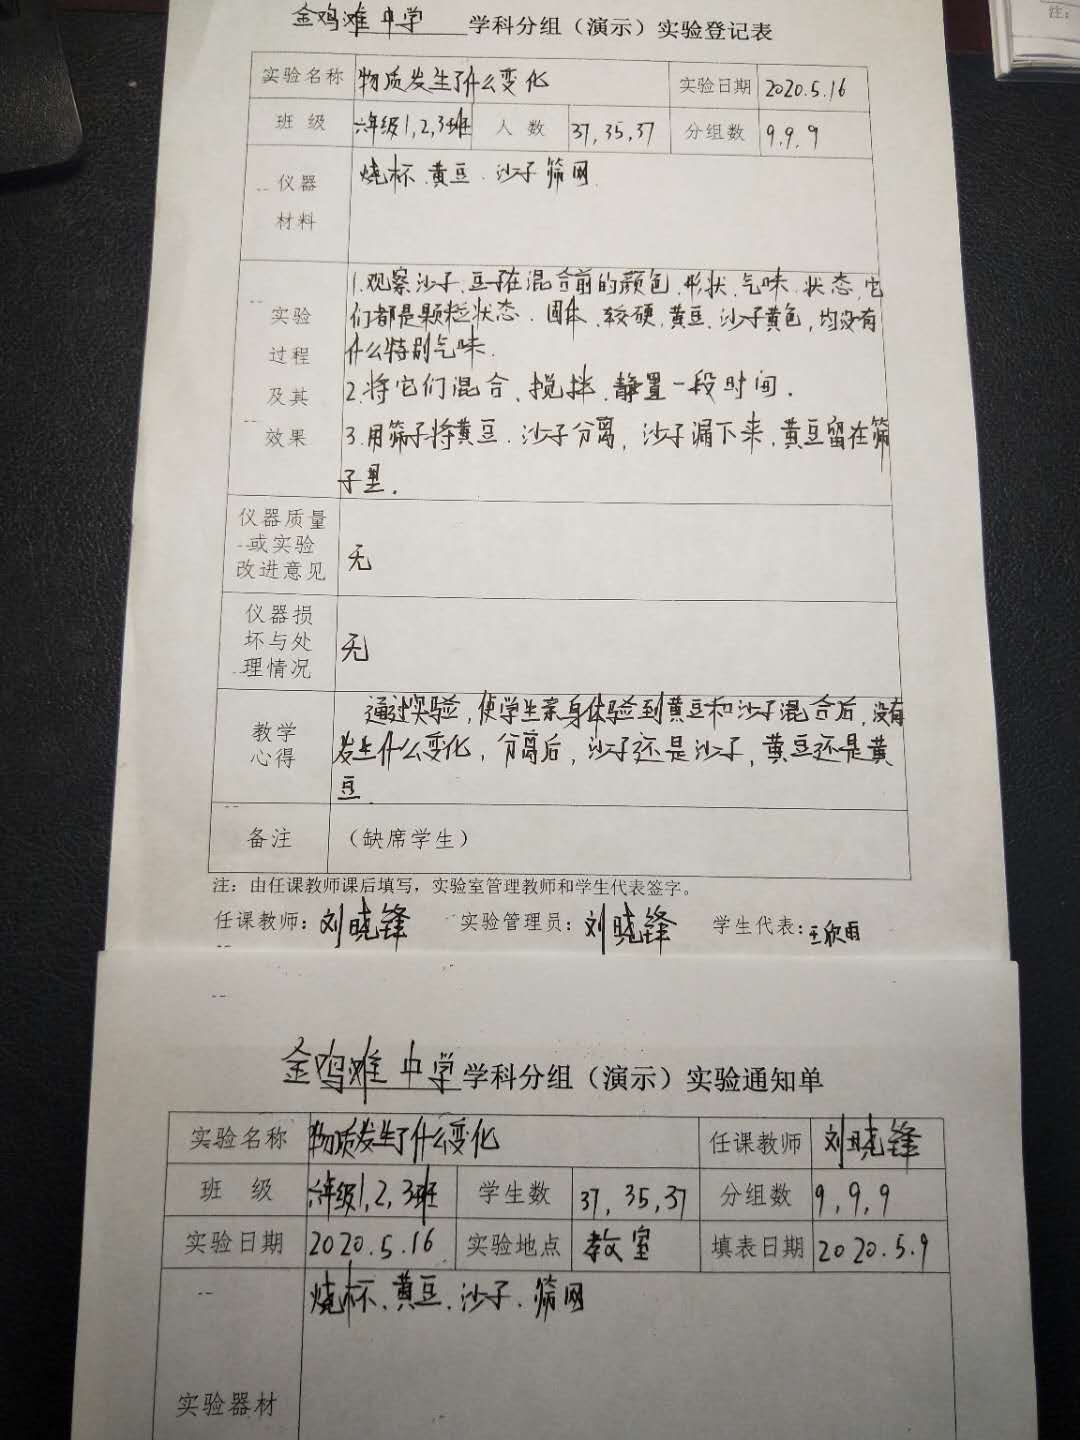 注:
金鸡滩中学 学科分组（演示）实验登记表
实验名称 物质发生了什么变化 实验日期 2020.5.16
班 级 六年级1,2,3班 人 数 37,35,37 分组数 9.9.9
仪器 烧杯、黄豆、沙子筛网
材料
1.观察沙子、豆子在混合前的颜色、形状、气味、状态,它
实验 们都是颗粒状态、固体、较硬,黄豆、沙子黄色,均没有
过程 什么特别气味.
及其 2.将它们混合、搅拌、静置一段时间.
效果 3.用筛子将黄豆、沙子分离,沙子漏下来,黄豆留在筛
子里.
仪器质量
或实验
改进意见 无
仪器损
坏与处
理情况 无
通过实验,使学生亲身体验到黄豆和沙子混合后,没有
教学
心得 发生什么变化,分离后,沙子还是沙子,黄豆还是黄
豆.
备注 （缺席学生）
注：由任课教师课后填写，实验室管理教师和学生代表签字。
任课教师：刘晓锋 实验管理员：刘晓锋 学生代表：王欣雨
金鸡滩中学学科分组（演示）实验通知单
实验名称 物质发生了什么变化 任课教师 刘晓锋
班 级 六年级1,2,3班 学生数 37,35,37 分组数 9,9,9
实验日期 2020.5.16 实验地点 教室 填表日期 2020.5.9
烧杯、黄豆、沙子、筛网
实验器材